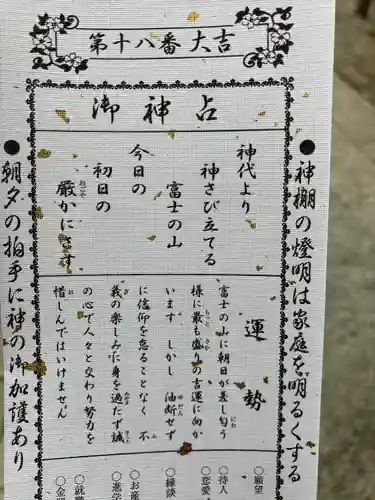 第十八番 大吉
御神占
●神棚の燈明は家庭を明るくする
神代より
神さび立てる
富士の山
今日の
初日の
厳かにさす
運勢
富士の山に朝日が差し匂う
様に最も盛りの吉運に向か
います しかし 油断せず
に信仰を怠ることなく 不
義の楽しみに身を過たず誠
の心で人々と交わり努力を
惜しんではいけません
○願望
○待人
○恋愛
○縁談
○お産
○進学
○就職
●朝夕の拍手に神の御加護あり